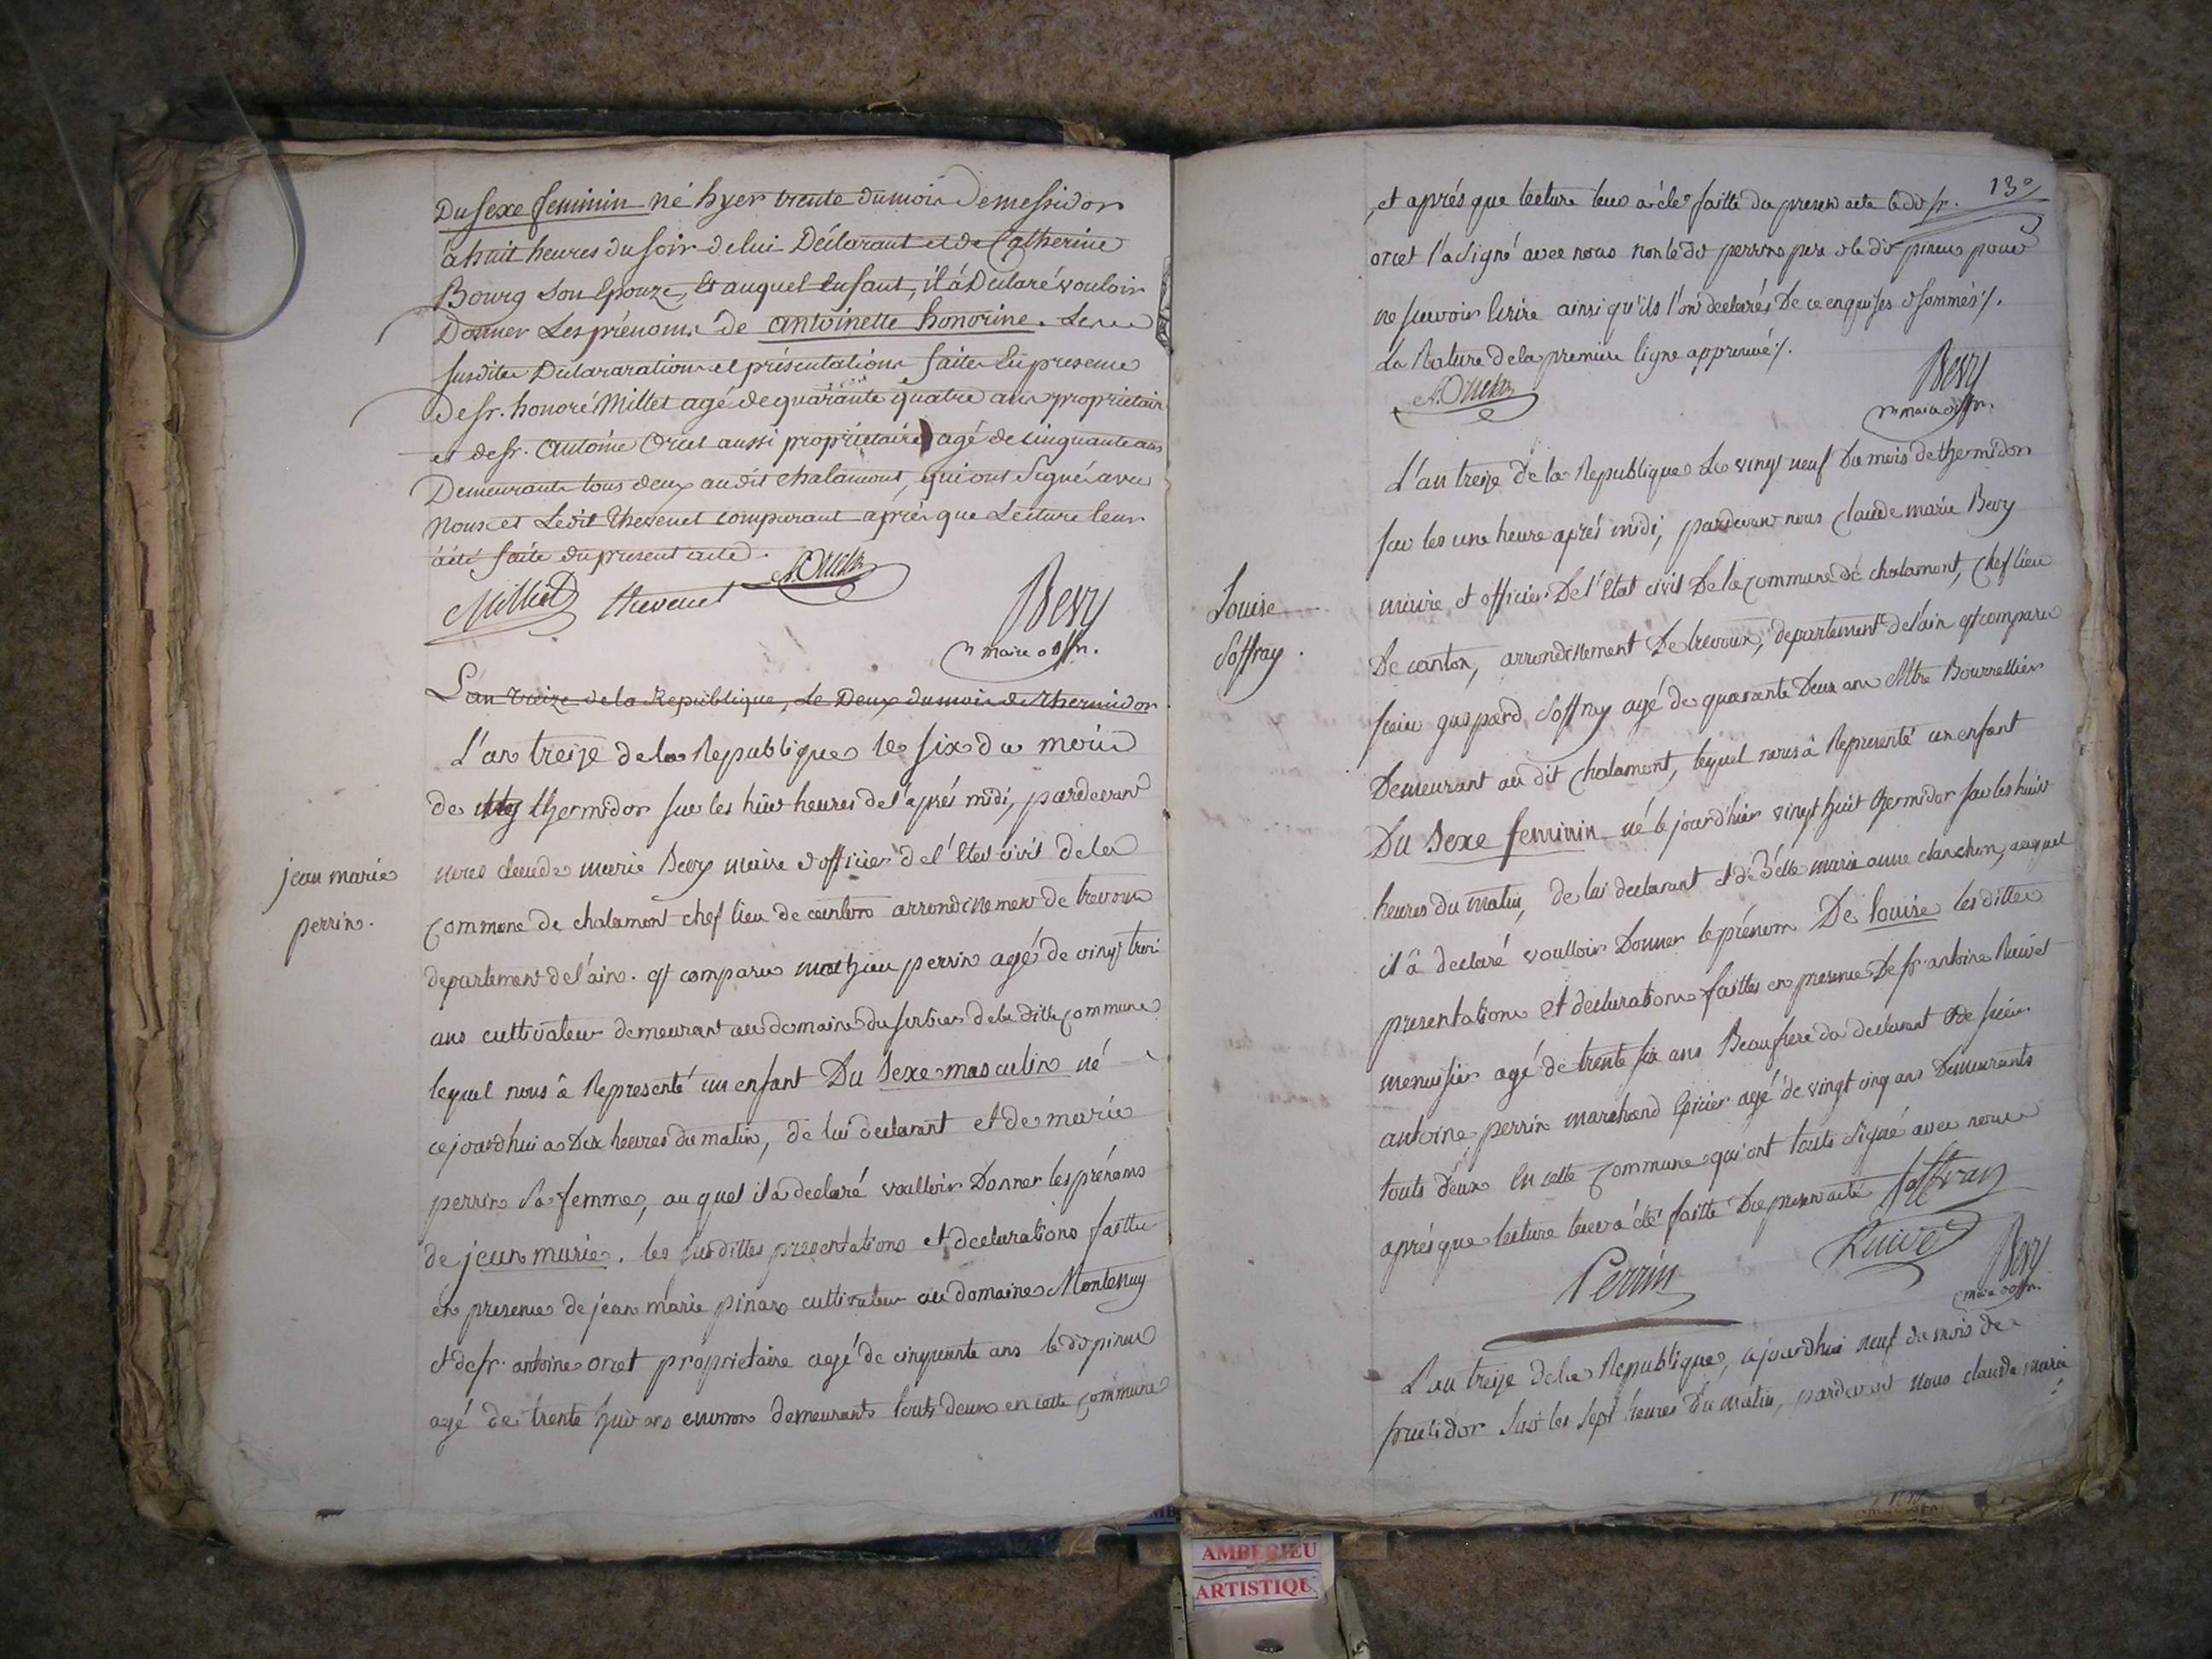 Du sexe feminin né hyer trente du mois de messidor
à huit heures du soir de lui Déclarant et de Catherine
Bourg son Epouze, Et auquel Enfant, il à Déclaré vouloir
Donner Les prénoms de antoinette honorine. Les
susdites Déclararation et présentation faites En presence
de sr. honoré Millet agé de quarante quatre ans proprietair
et de sr. Antoine Orcet aussi propriétaire agé de cinquante ans
Demeurants tous deux au dit chalamont, qui ont Signé avec
Nous et Ledit Thevenet comparant après que Lecture leur
a été faite du present acte.
A. Orcet
Milliet
thevenet
Bevy
maire offr.
L'an treize de la Republique, Le Deux du mois de Thermidor
L'an treize de la Republique le six du mois
de thermidor sur les huit heures de l'après midi, pardevant
jean marie
perrin.
nous claude marie Bevy maire et officier de l'Etat civil de la
commune de chalamont chef lieu de canton arrondissement de trevoux
departement de l'ain. est comparu mathieu perrin agé de vingt trois
ans cultivateur demeurant au domaine du de la ditte commune
lequel nous à Representé un enfant Du Sexe masculin né
cejourdhui a Dix heures du matin, de lui declarant et de marie
perrin sa femme, auquel il a declaré voulloir Donner les prénoms
de jean marie. les susdittes presentations et declarations faittes
en presence de jean marie pinard cultivateur au domaine Montenuy
et de sr. antoine orcet proprietaire agé de cinquante ans le dit
agé de trente huit ans environ demeurants touts deux en cette commune
130
, et après que lecture leur a été faitte du present acte le dit sr.
orcet l'a signé avec nous non le dit perrin pere et le dit pour
ne sçavoir Ecrire ainsi qu'ils l'ont declarés De ce enquises et sommés /.
La Rature de la premiere ligne approuvé /.
A. Orcet
Bevy
maire offr.
L'an treize de la Republique Le vingt neuf Du mois de thermidor
sur les une heure après midi, pardevant nous claude marie Bevy
Louise
Soffray.
maire et officier De l'Etat civil De la commune de chalamont, chef lieu
De canton, arrondissement De trevoux, departement de l'ain est comparu
sieur gaspard Soffray agé de quarante Deux ans Mtre Bourrellier
Demeurant au dit chalamont, lequel nous à Representé un enfant
Du Sexe feminin né le jourd'hier vingt huit thermidor sur les huit
heures du matin, de lui declarant et de Delle marie anne clanchon, auquel
il à declaré voulloir Donner le prénom De Louise les dittes
presentations et declarations faittes en presence De sr. antoine Ruivet
menuisier agé de trente six ans Beaufrere du declarant et de sieur
antoine perrin marchand Epicier agé de vingt cinq ans Demeurants
touts deux En cette commune qui ont touts signé avec nous
après que lecture leur a été faitte Du present acte Soffray
Perrin
Ruivet
Bevy
maire offr.
L'an treize de la Republique, a jourdhui neuf du mois de
fructidor sur les sept heures Du matin, pardevant nous claude marie
AMBERIEU
ARTISTIQU